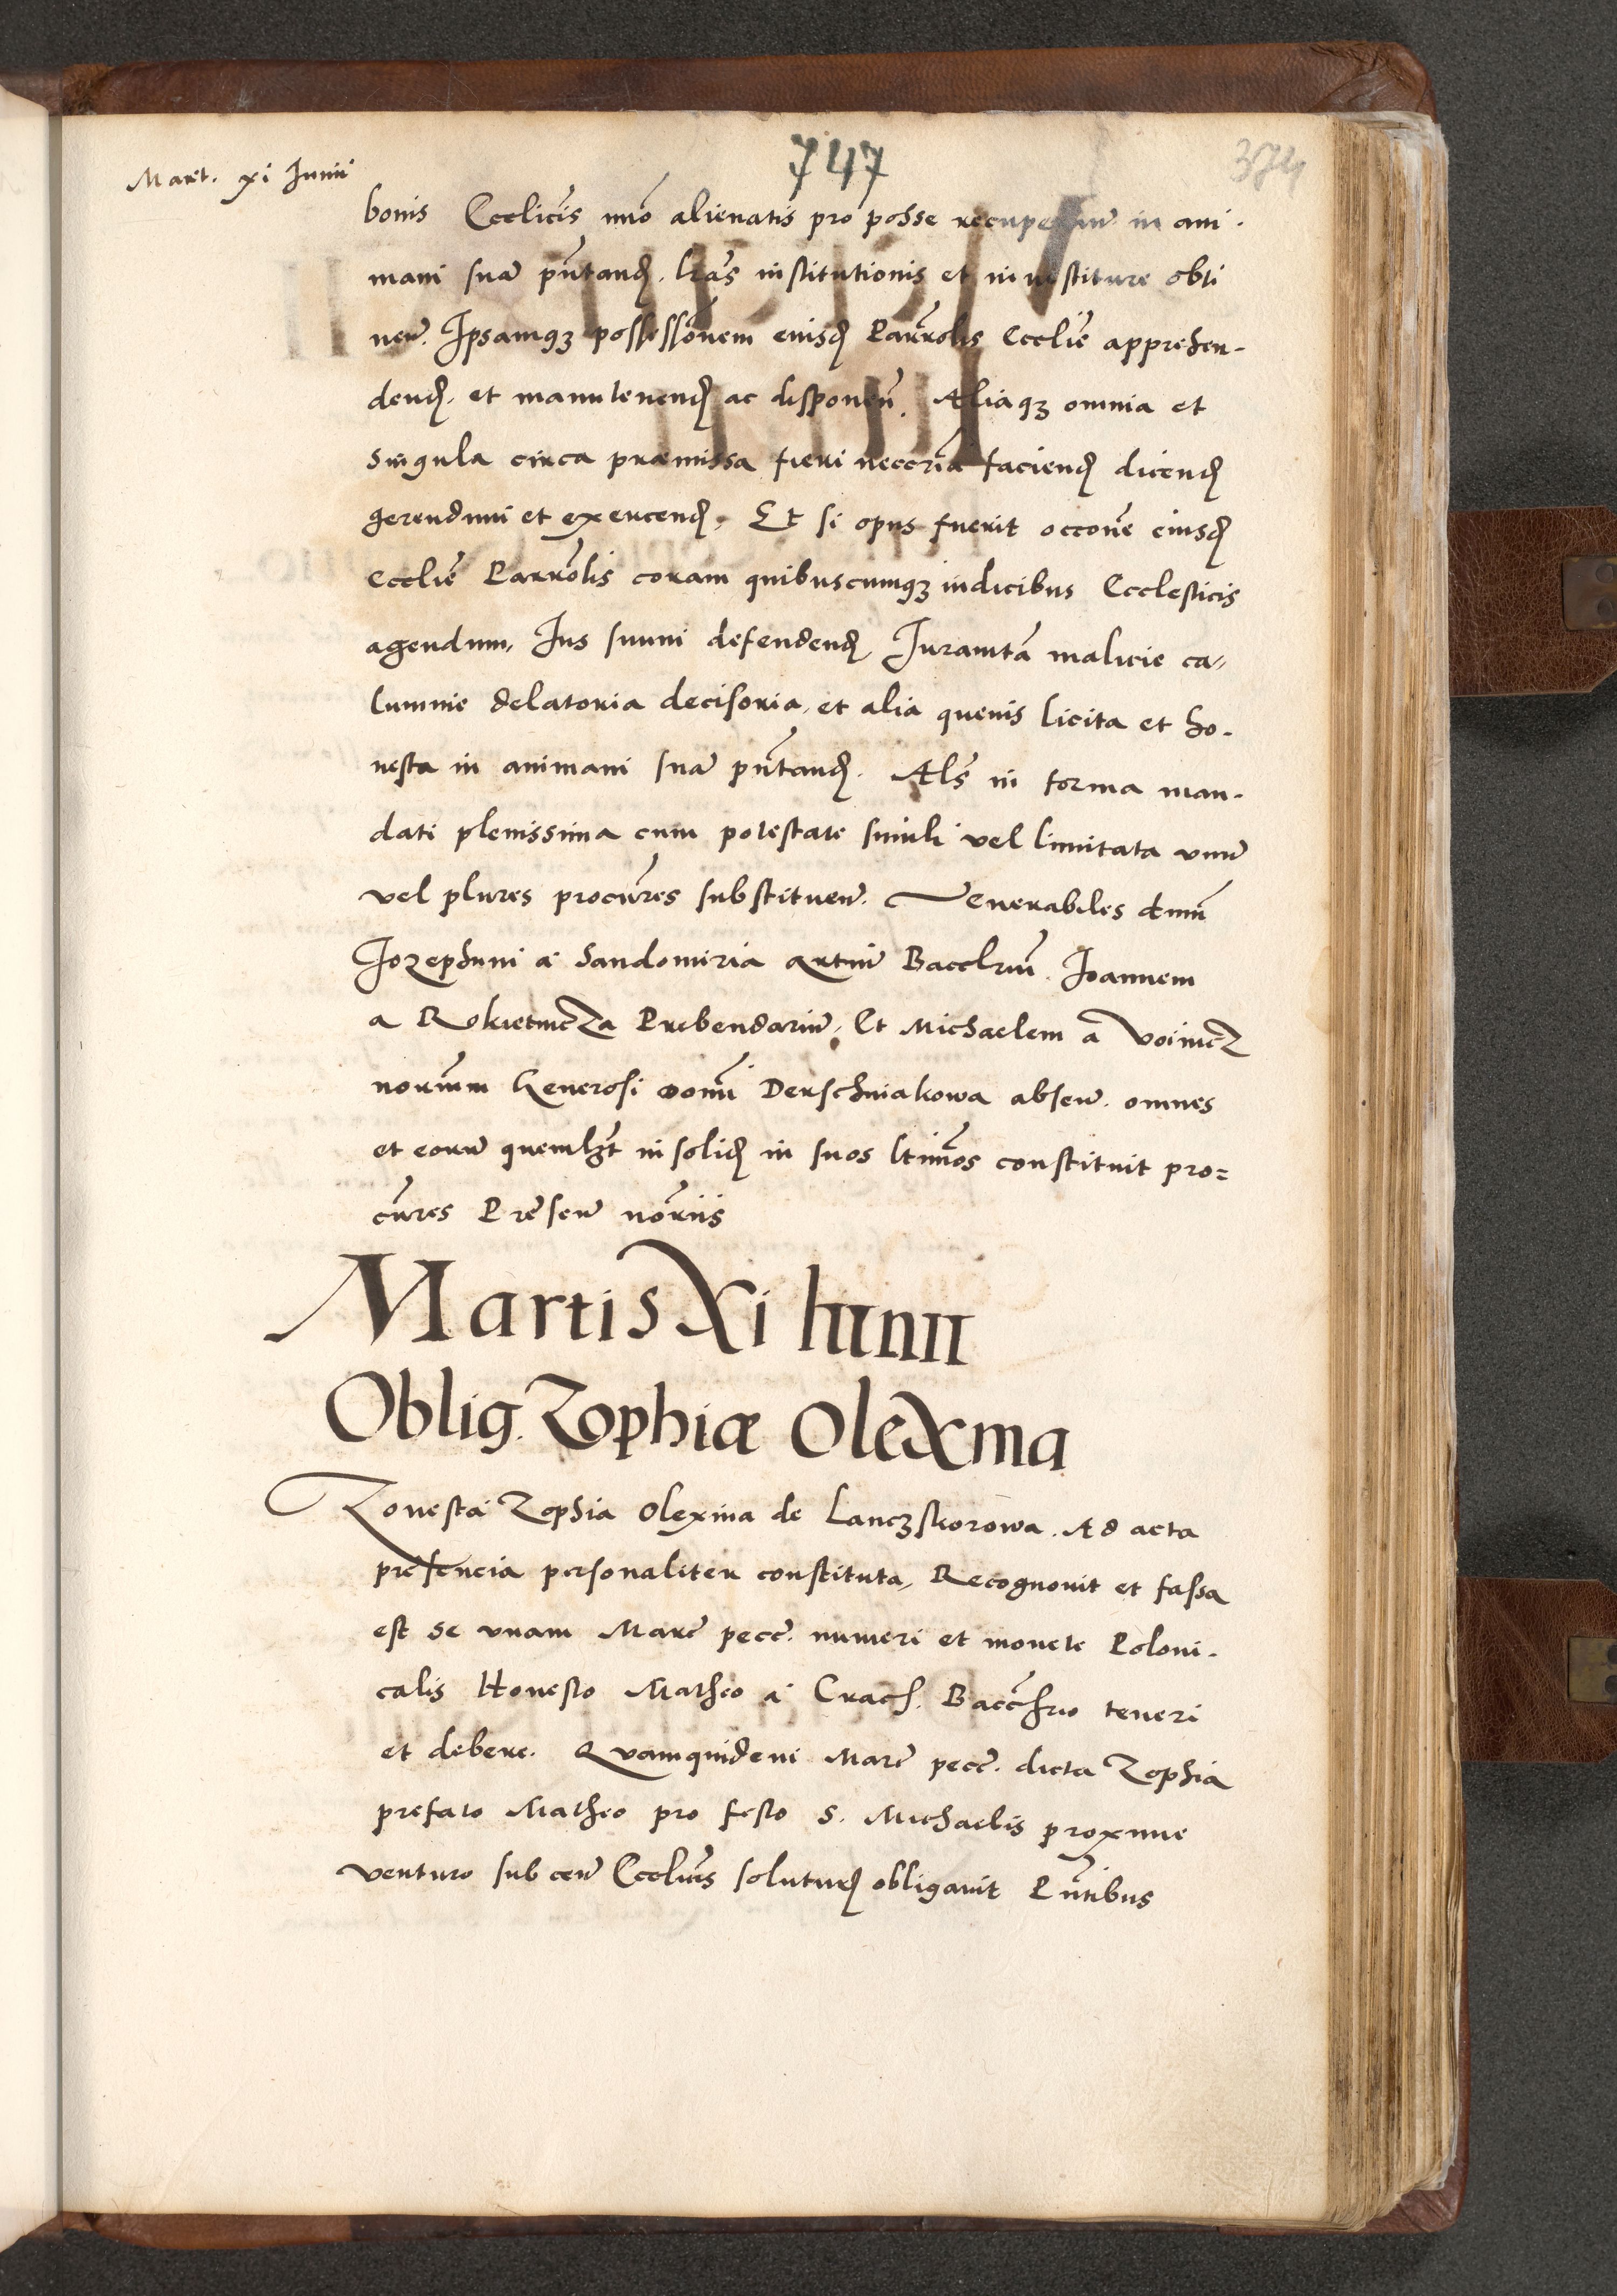 747
374
Mart. xi Junii
bonis Ecclicis imo alienatis pro posse recuperan̄ in ani-
mam suā pn̄tand. Lr̄as institutionis et investiture obti
nen̄. Ipsamqꝫ possessionem eiusd Parrolis Ecclie apprehen-
dend. et manutenend ac disponen̄. Aliaqꝫ omnia et
singula circa præmissa fieri neccria faciend dicend
gerendum et exercend. Et si opus fuerit occone eiusd
Ecclie Parrolis coram quibuscumqꝫ iudicibus Ecclesticis
agendum, Jus suum defendend, Juramta malicie ca-
lumnie delatoria decisoria, et alia quevis licita et ho-
nesta in animam suā pn̄tand. Als in forma man-
dati plenissima cum potestate simili vel limitata unū
vel plures procures substituen̄. Venerabiles dmn̄
Jozephum a Sandomiria artiū Bacclriū. Joannem
a Rokietnicza Prebendariū, Et Michaelem a Voinicz
norium Generosi domi Derschniakowa absen̄. omnes
et eorū quemlꝫt in solid in suos ltimos constituit pro=
cures Presen̄ noriis
Martis Xi Iunii
Oblig. Zophiæ Olexina
Honesta Zophia Olexina de Lanczskorowa. Ad acta
presencia personaliter constituta, Recognovit et fassa
est se unam Marc̄ pecc̄. numeri et monete Poloni-
calis Honesto Matheo a Crach. Bacchrio teneri
et debere. Quamquidem Marc̄ pecc̄. dicta Zophia
prefato Matheo pro festo S. Michaelis proxime
venturo sub cen̄ Ecclicis soluturd obligavit Pn̄tibus